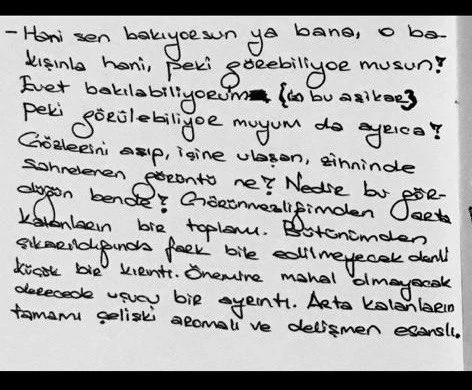 - Hani sen bakıyorsun ya bana, o ba-
kışınla hani, peki görebiliyor musun?
Evet bakılabiliyorum {ki bu aşikar}
peki görülebiliyor muyum da ayrıca?
Gözlerini aşıp, içine ulaşan, zihninde
sahnelenen görüntü ne? Nedir bu gör-
düğün bende? Görünmezliğimden arta
kalanların bir toplamı. Bütünümden
çıkarıldığında fark bile edilmeyecek denli
küçük bir kırıntı. Önemine mahal olmayacak
derecede uçucu bir ayrıntı. Arta kalanların
tamamı çelişki aromalı ve delişmen esanslı.